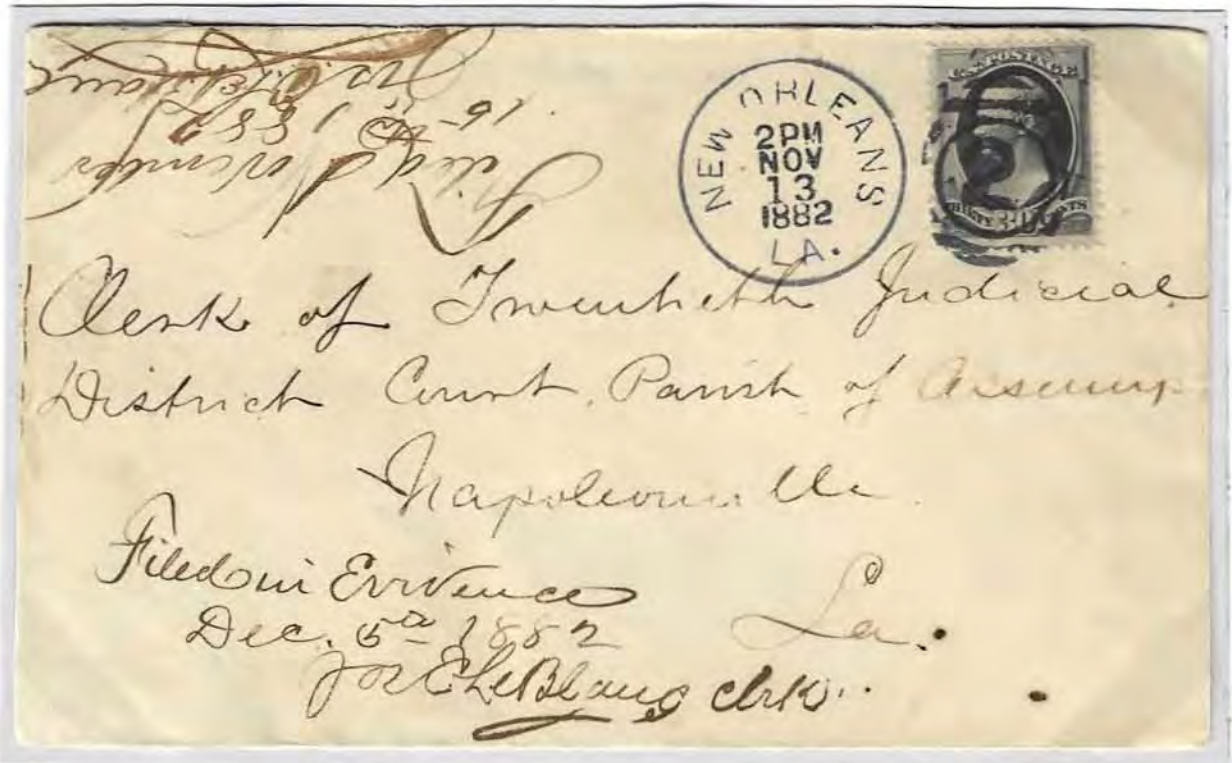 Filed November
15th 1882
NEW ORLEANS
2PM
NOV
13
1882
LA.
U.S. POSTAGE
THIRTY 30 CENTS
Clerk of Twentieth Judicial
District Court, Parish of Assump
Napoleonville
La.
Filed in Evidence
Dec. 5th 1882
Jos E LeBlanc clrk